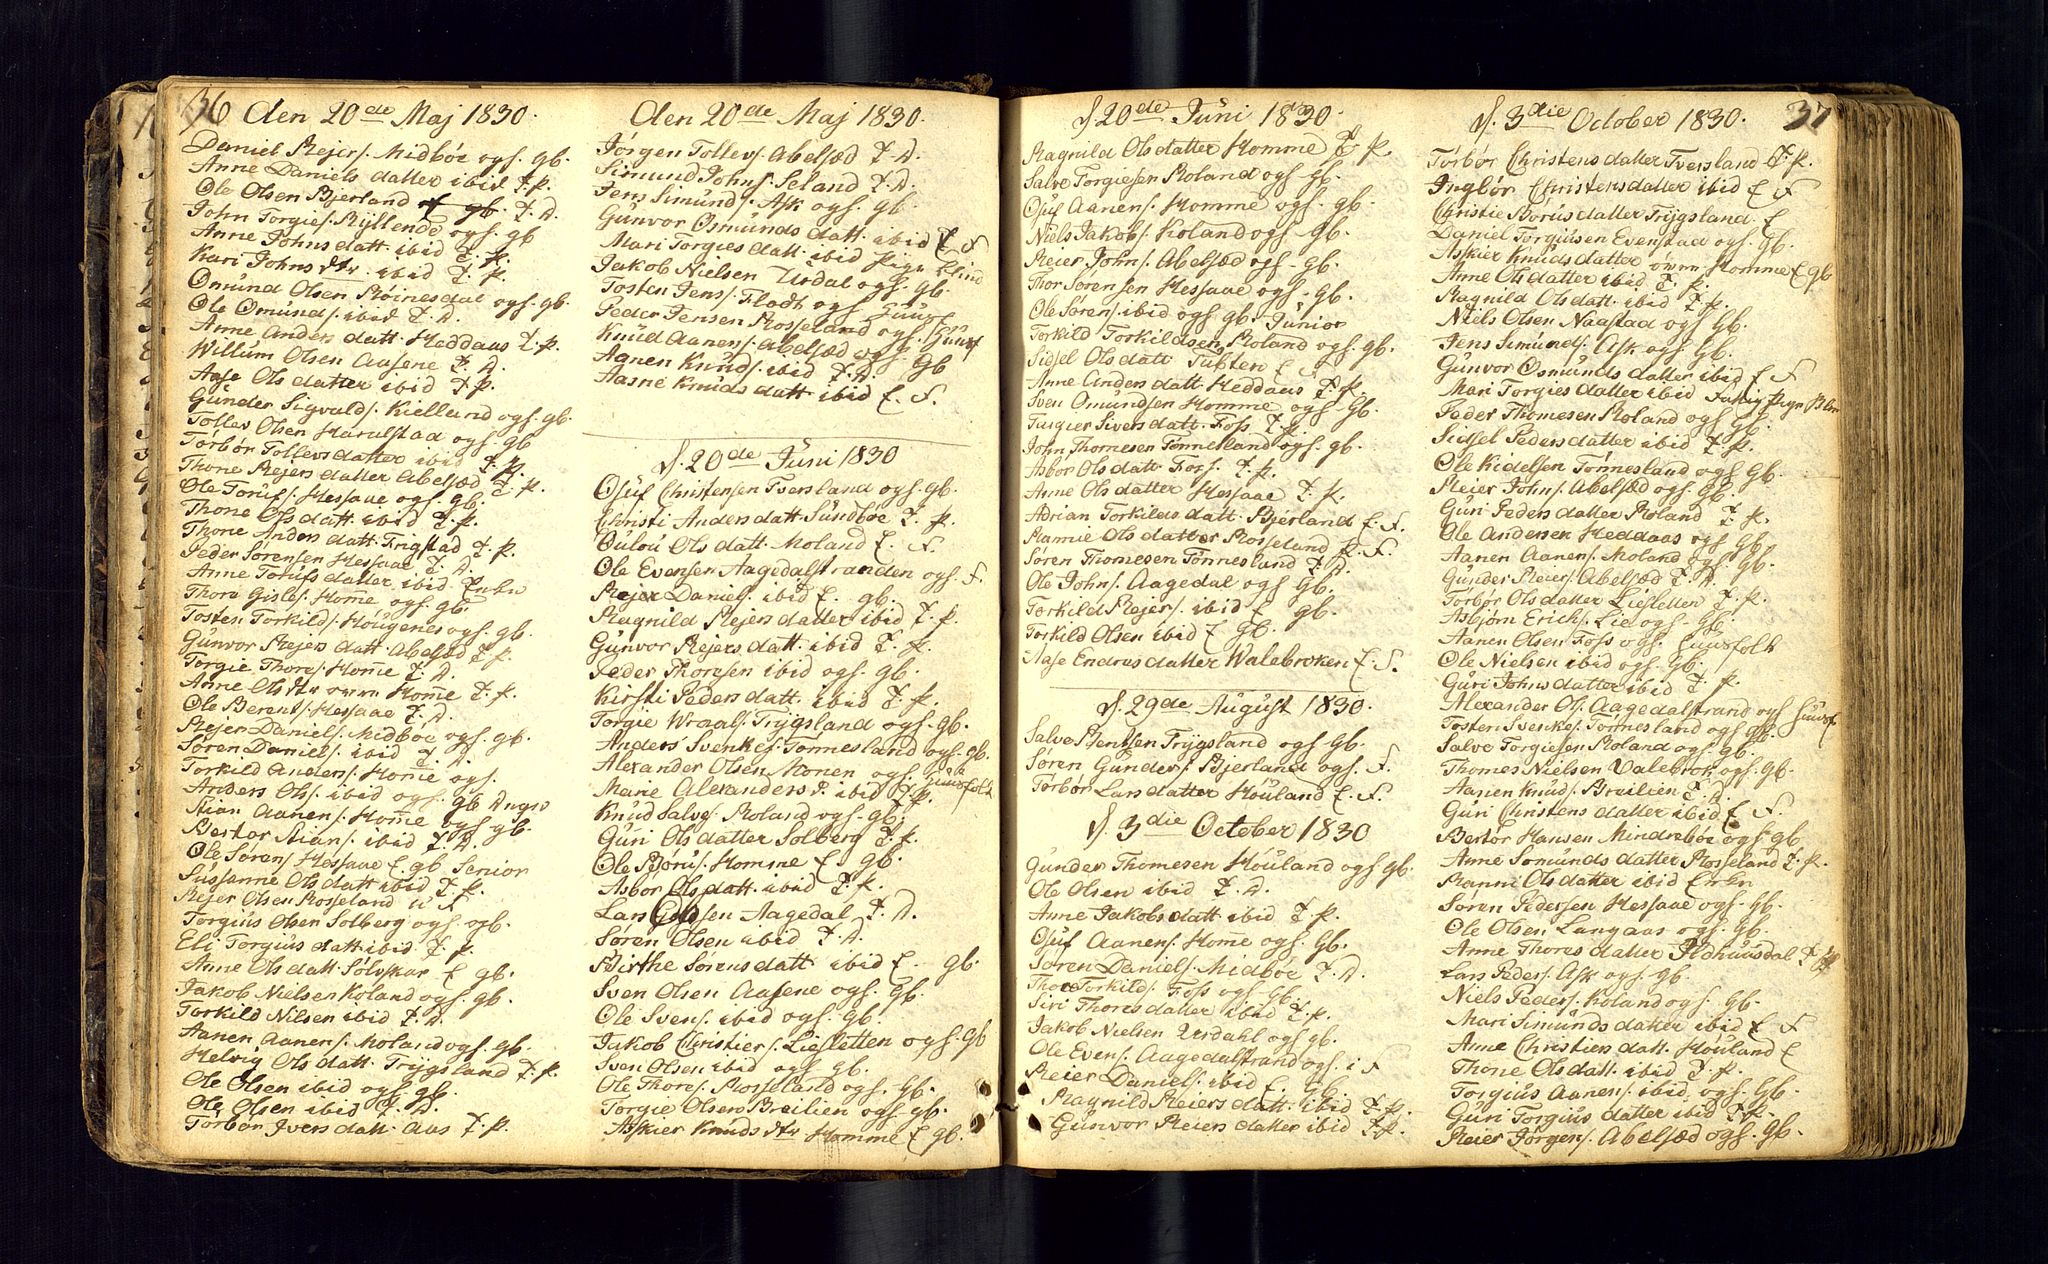 36 Den 20de Maj 1830.
Daniel Rejers. Midbøe ogs. gb.
Anne Daniels datter ibid T. P.
Ole Olsen Bjerland T. D.
John Torgies. Ryllende ogs. gb
Anne Johns datt. ibid T. P.
Kari Johns dtr. ibid T. P.
Omund Olsen Røinesdal ogs. gb.
Ole Omunds. ibid T. D.
Anne Anders datt. Heddaas T. P.
Willum Olsen Aasene T. D.
Aase Ols datter ibid T. P.
Gunder Sigvalds. Kielland ogs. gb.
Tollev Olsen Haralstad ogs. gb
Torbør Tollevs datter ibid T. P.
Thone Rejers datter Abelsæd T. P.
Ole Torufs. Hessaae ogs. gb.
Thone Ols datt. ibid T. P.
Thone Anders datt. Frigstad T. P.
Peder Sørensen Hessaae T. D.
Anne Torufs datter ibid Enke
Thore Gisles. Home ogs. gb.
Tosten Torkilds. Hougenes ogs. gb.
Gunvor Rejers datt. Abelsæd T. P.
Torgie Thores. Home T. D.
Anne Ols dtr Home T. P.
Ole Berents. Hessaae T. D.
Rejer Daniels. Midbøe ogs. gb.
Søren Daniels. ibid T. D.
Torkild Anders. Home ogs.
Anders Ols. ibid ogs. gb
Stian Aanens. Home ogs gb.
Bertor Stians. ibid T. D.
Ole Sørens. Hessaae E. gb Senior
Sussanne Ols datt ibid T. P.
Rejer Olsen Rosseland u F
Torgius Olsen Solberg ogs. gb.
Eli Torgius datt ibid T. P.
Anne Ols datt. Sølvskar E gb.
Jakob Nielsen Koland ogs. gb.
Torkild Nilsen ibid T. D.
Aanen Aanens. Moland ogs. gb.
Helvig Ols datt. Trygsland T. P.
Ole Olsen ibid ogs gb.
Ole Olsen ibid T. D.
Torbør Ivers datt. Aas T. P.
Den 20de Maj 1830.
Jørgen Tollevs. Abelsæd T. D.
Simund Johns. Seland T. D.
Jens Simunds. Ask ogs. gb.
Gunvor Osmunds datt. ibid E F
Mari Torgies datt. ibid Pige blind
Jakob Nielsen Urdal ogs. gb.
Tosten Jens. Flodt ogs
Peder Jensen Rosseland ogs.
Knud Aanens. Abelsæd ogs. gb
Aanen Knuds. ibid T. D.
Aasne Knuds datt. ibid E. F.
d. 20de Juni 1830
Osuf Christensen Tversland ogs. gb.
Christi Anders datt. Sundbøe T. P.
Oulou Ols datt. Moland E. F.
Ole Evensen Aagedalstranden ogs. F.
Rejer Daniels. ibid E. gb.
Ragnild Rejers datter ibid T. P.
Gunvor Rejers datt. ibid T. P.
Peder Thoresen ibid ogs. gb.
Kirsti Peders datt. ibid T. P.
Torgie Wroals. Trygsland ogs. gb.
Anders Svenkes. Tonnesland ogs. gb.
Alexander Olsen Monen ogs. F. Huusfolk
Marie Alexanders d. ibid T. P.
Knud Salves. Roland ogs. gb.
Guri Ols datter Solberg T. P.
Ole Bjørus. Homme E. gb.
Asbor Ols datt. ibid T. P.
Lars Aagedal T. D.
Søren Olsen ibid T. D.
Birthe Sørens datt ibid E. gb.
Sven Olsen Aasene ogs. gb.
Ole Svens. ibid ogs. gb.
Jakob Christiers. Liesletten ogs. gb
Sven Olsen ibid ogs gb.
Ole Thores. Rosseland ogs. gb.
Torgie Olsen Breilien ogs. gb.
Askier Knuds dtr Homme E gb.
37
d. 20de Juni 1830.
Ragnild Ols datter Homme T. P.
Salve Torgiesen Roland ogs gb.
Osuf Aanens. Homme ogs. gb.
Niels Jakobs. Koland ogs. gb.
Reier Johns. Abelsæd ogs. gb.
Thor Sørensen Hessaae ogs. gb.
Ole Sørens. ibid ogs gb. Junior
Torkild Torkildsen Roland ogs. gb.
Sidsel Ols datt. Tubten E F
Anne Anders datt. Heddaas T. P.
Sven Omundsen Homme ogs. gb.
Turgier Sivers datt. Foss T. P.
John Thomesen Tønnesland ogs. gb.
Asbor Ols datt. Foss. T. P.
Anne Ols datter Hessaae T. P.
Adrian Torkilds datt. Bjerland E F.
Ramie Ols datter Rosseland P. F.
Søren Thomesen Tønnesland T. D.
Ole Johns. Aagedal ogs gb.
Torkild Rejers. ibid E gb.
Torkild Olsen ibid E gb.
Aase Endres datter Walebroken E. F.
d. 29de August 1830.
Salve Bentsen Trygsland ogs gb.
Søren Gunders. Bjerland ogs. F.
Torbør Lars datter Houland E. F.
d. 3die October 1830
Gunder Thomesen Houland ogs gb.
Ole Olsen ibid T. D.
Anne Jakobs datt. ibid T. P.
Osuf Aanens. Home ogs. gb.
Søren Daniels. Midbøe T. D.
Thore Torkilds. Foss ogs. gb.
Siri Thores datter ibid T. P.
Jakob Nielsen Urdahl ogs gb.
Ole Evens. Aagedalstrand ogs. i F
Reier Daniels. ibid E. gb.
Ragnild Reiers datt. ibid T. P.
Gunvor Reiers datter ibid T. P.
d. 3die October 1830.
Torbør Christens datter Tversland T. P.
Ingbør Christens datter ibid E F
Christie Børus datter Trygsland. E
Daniel Torgiusen Evenstad ogs gb.
Askier Knuds datter Homme E gb
Anne Ols datter ibid T. P.
Ragnild Ols datt. ibid T. P.
Niels Olsen Naastad ogs gb.
Jens Simunds. Ask ogs gb.
Gunvor Osmunds datter ibid E F
Mari Torgies datter ibid Pige
Peder Thomesen Roland ogs gb.
Sidsel Peders datter ibid T. P.
Ole Kidelsen Tønnesland ogs gb.
Reier Johns. Abelsæd ogs. gb.
Guri Peders datter Roland T. P.
Ole Andersen Heddaas ogs gb.
Aanen Aanens. Moland ogs gb.
Gunder Reiers. Abelsæd T. D.
Torbør Ols datter Liesletten T. P.
Asbjørn Erichs. Lie ogs. gb.
Aanen Olsen Foss ogs. Huusfolk
Ole Nielsen ibid ogs. gb.
Guri Johns datter ibid T. P.
Alexander Ols. Aagedalstrand ogs Huusf
Tosten Svenkes. Tønnesland ogs gb.
Salve Torgiesen Roland ogs. gb.
Thomes Nielsen Valebrok ogs. gb.
Aanen Knuds. Breilien T. D.
Guri Christens datter ibid E F
Bertor Hansen Mindrebøe ogs gb
Anne Somunds datter Rosseland T. P.
Ranni Ols datter ibid Enke
Søren Pedersen Hessaae ogs. gb.
Ole Olsen Langaas ogs. gb.
Anne Thores datter Ildhuusdal T.
Lars Peders. Ask ogs. gb.
Niels Peders. Koland ogs. gb.
Mari Simunds datter ibid E F
Anne Christiens datt. Houland E
Thone Ols datt. ibid T. P.
Torgius Aanens. ibid ogs gb.
Guri Torgius datter ibid T. P.
Reier Jørgens. Abelsæd ogs. gb.